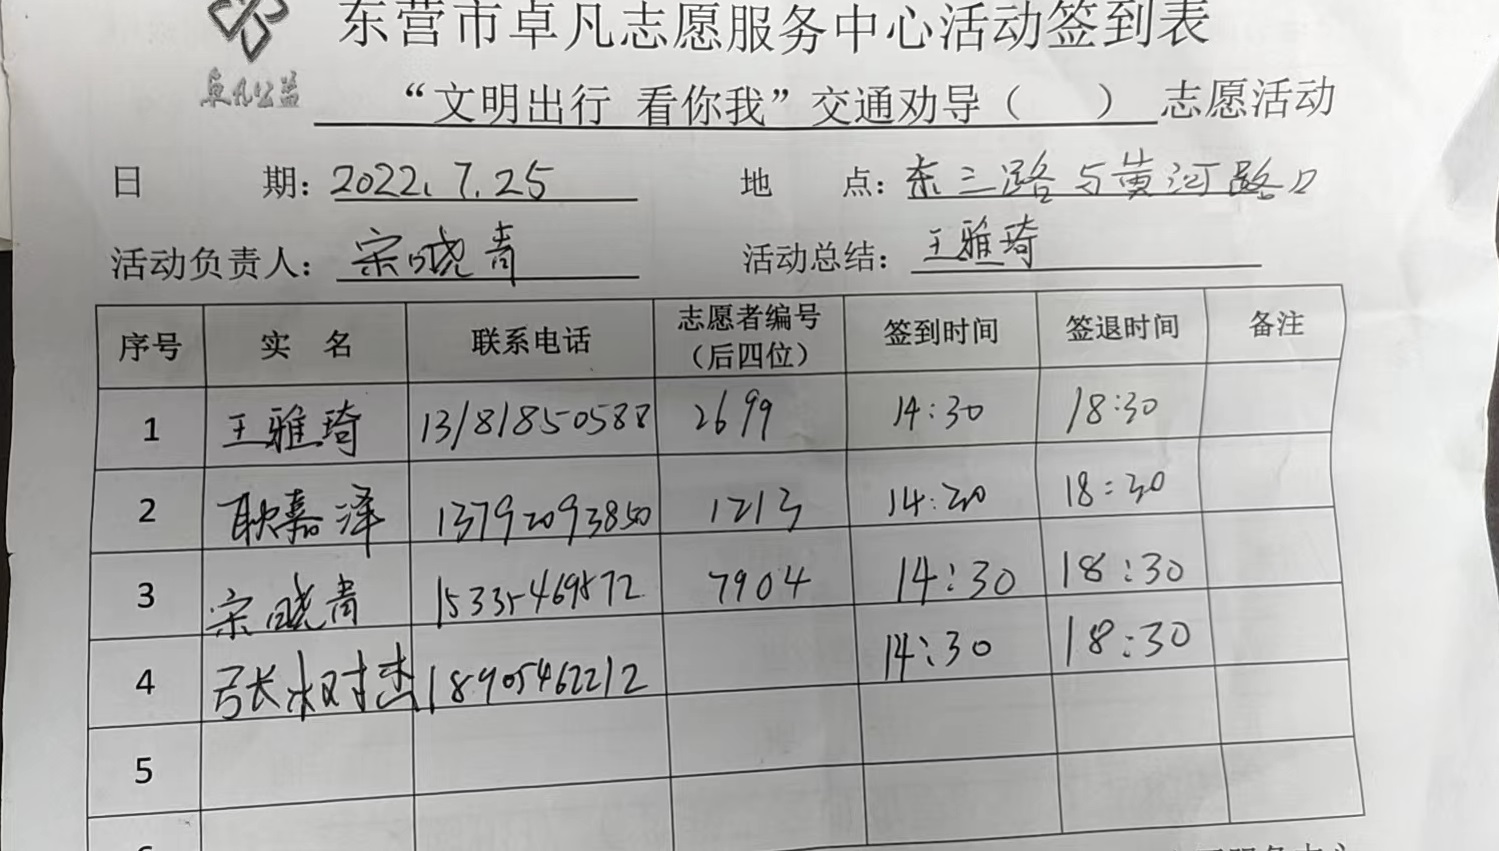 东营市卓凡志愿服务中心活动签到表
卓凡公益
“文明出行 看你我”交通劝导（ ）志愿活动
日 期：2022.7.25 地 点：东三路与黄河路口
活动负责人：宋晓青 活动总结：王雅琦
序号 实 名 联系电话 志愿者编号（后四位） 签到时间 签退时间 备注
1 王雅琦 13181850588 2699 14:30 18:30
2 耿嘉泽 13792093850 1213 14:30 18:30
3 宋晓青 15335469872 7904 14:30 18:30
4 张树杰 18905462212 14:30 18:30
5